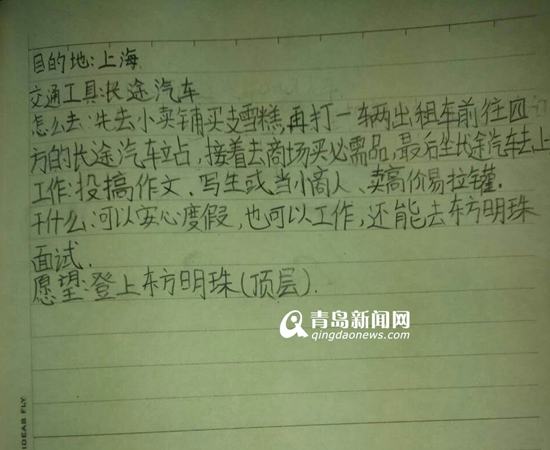 目的地:上海
交通工具:长途汽车
怎么去:先去小卖铺买支雪糕,再打一车辆出租车前往四
方的长途汽车立占,接着去商场买必需品,最后坐长途汽车去上
工作:投搞作文、写生或当小商人、卖高价易拉罐.
干什么:可以安心度假,也可以工作,还能去东方明珠
面试.
愿望:登上东方明珠(顶层).
青岛新闻网
qingdaonews.com
IDEAS FLY